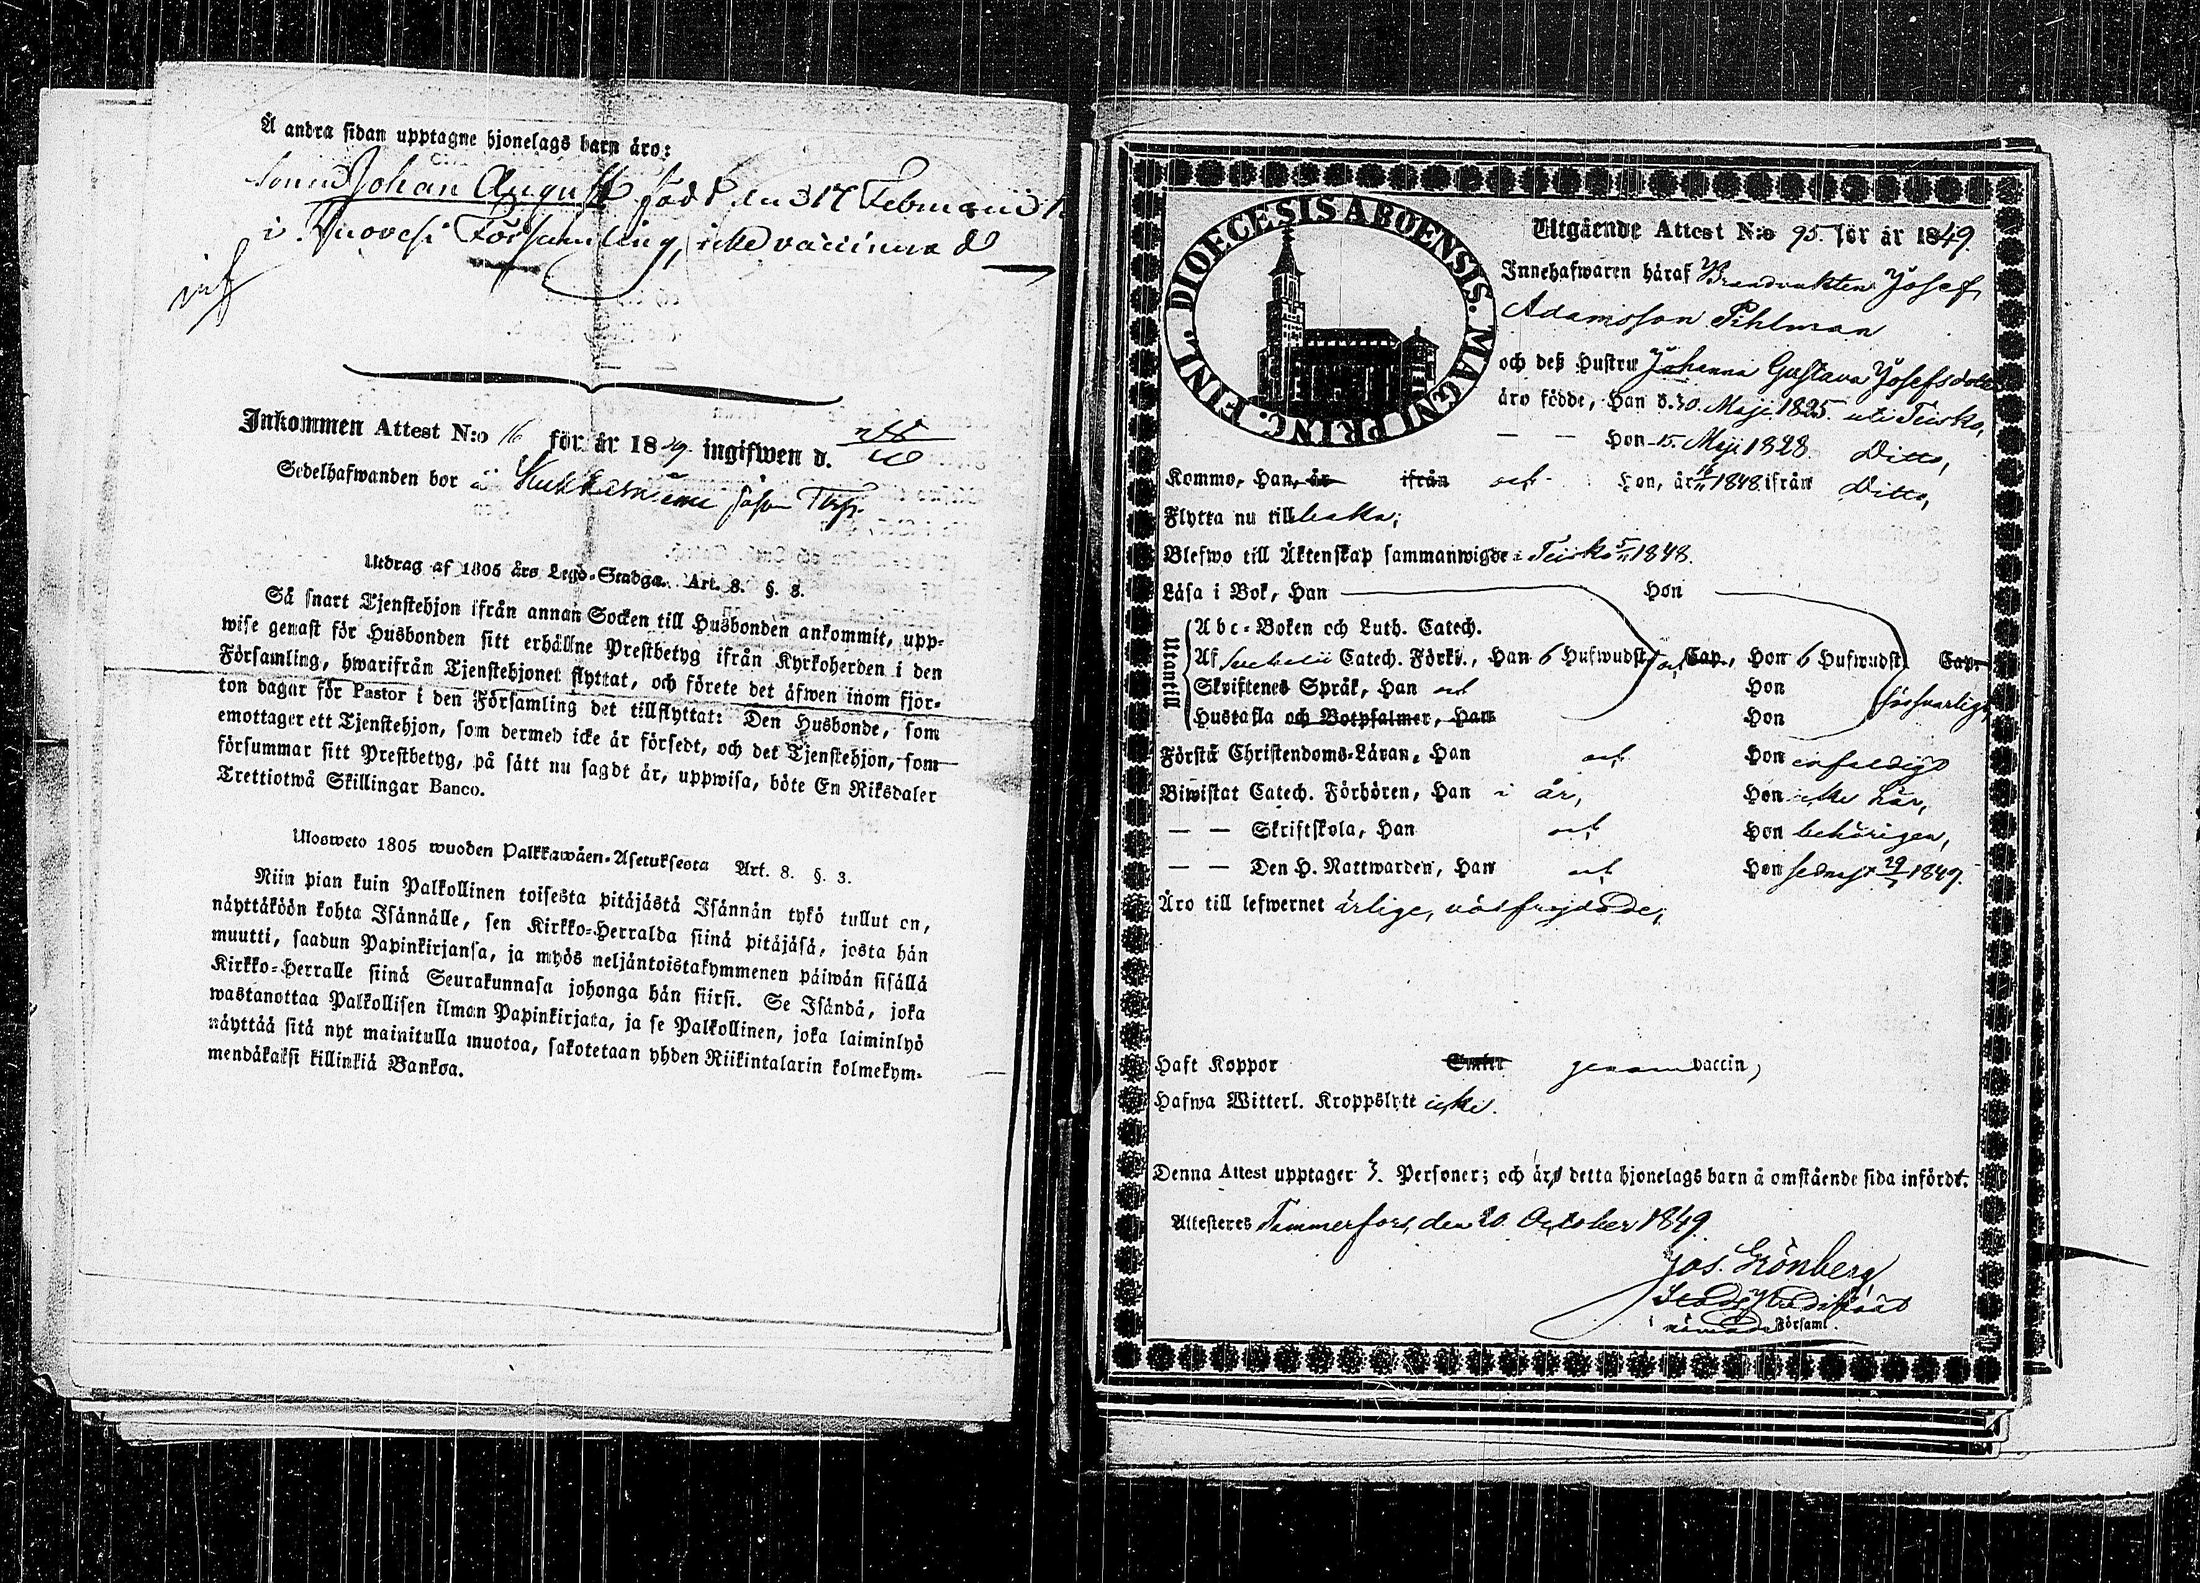 Å andra sidan upptagne hjonelags barn äro:
Johan August född den 17 Februarii
i Ruovesi Församling, icke vaccinerad
Inkommen Attest N:o 16 för år 1849 ingifwen d.
Sedelhafwanden bor
Utdrag af 1805 års Lego-Stadga. Art. 8. §. 3.
Så snart Tjenstehjon ifrån annan Socken till Husbonden ankommit, upp-
wise genast för Husbonden sitt erhållne Prestbetyg ifrån Kyrkoherden i den
Församling, hwarifrån Tjenstehjonet flyttat, och förete det äfwen inom fjor-
ton dagar för Pastor i den Församling det tillflyttat: Den Husbonde, som
emottager ett Tjenstehjon, som dermed icke är försedt, och det Tjenstehjon, som
försummar sitt Prestbetyg, på sätt nu sagdt är, uppwisa, böte En Riksdaler
Trettiotwå Skillingar Banco.
Ulosweto 1805 wuoden Palkkawäen-Asetuksesta Art. 8. §. 3.
Niin pian kuin Palkollinen toisesta pitäjästä Isännän tykö tullut on,
näyttäköön kohta Isännälle, sen Kirkko-Herralda siinä pitäjäsä, josta hän
muutti, saadun Papinkirjansa, ja myös neljäntoistakymmenen päiwän sisällä
Kirkko-Herralle siinä Seurakunnasa johonga hän siirsi. Se Isändä, joka
wastanottaa Palkollisen ilman Papinkirjata, ja se Palkollinen, joka laiminlyö
näyttää sitä nyt mainitulla muotoa, sakotetaan yhden Riikintalarin kolmekym-
mendäkaksi killinkiä Bankoa.
DIOECESIS ABOENSIS. MAGNI PRINC. FINL.
Utgående Attest N:o 95. för år 1849.
Innehafwaren häraf Brandvakten Josef
Adamsson Pihlman
och deß Hustru Johanna Gustava Josefsdotter
äro födde, Han d. 30. Maji 1825. uti Teisko,
— — Hon 15. Maji 1828. Ditto,
Kommo, Han, är ifrån och Hon, år 1848 ifrån Ditto,
Flytta nu tillbaka;
Blefwo till Äktenskap sammanwigde i Teisko 5/11 1848.
Läsa i Bok, Han Hon
Utantill
Abc-Boken och Luth. Catech.
Af Svebelii Catech. Förkl., Han 6 Hufwudst. Cap., Hon 6 Hufwudst. Cap.
Skriftenes Språk, Han och Hon försvarligt,
Hustafla och Botpsalmer, Han Hon
Förstå Christendoms-Läran, Han och Hon enfaldigt
Biwistat Catech. Förhören, Han i år, Hon icke här,
— — Skriftskola, Han och Hon behörigen,
— — Den H. Nattwarden, Han och Hon sednast 1849.
Äro till lefwernet ärlige, väl frejdade;
Haft Koppor genom vaccin,
Hafwa Witterl. Kroppslyte icke.
Denna Attest upptager 3. Personer; och äro detta hjonelags barn å omstående sida införde.
Attesteres Tammerfors, den 20. October 1849.
Jos. Grönberg
i nämnde Församl.